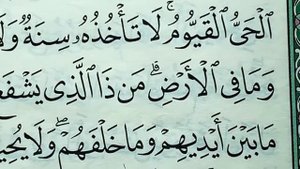 الْحَيُّ الْقَيُّومُ ۚ لَا تَأْخُذُهُ سِنَةٌ وَلَا
وَمَا فِي الْأَرْضِ ۗ مَن ذَا الَّذِي يَشْفَعُ
مَا بَيْنَ أَيْدِيهِمْ وَمَا خَلْفَهُمْ ۖ وَلَا